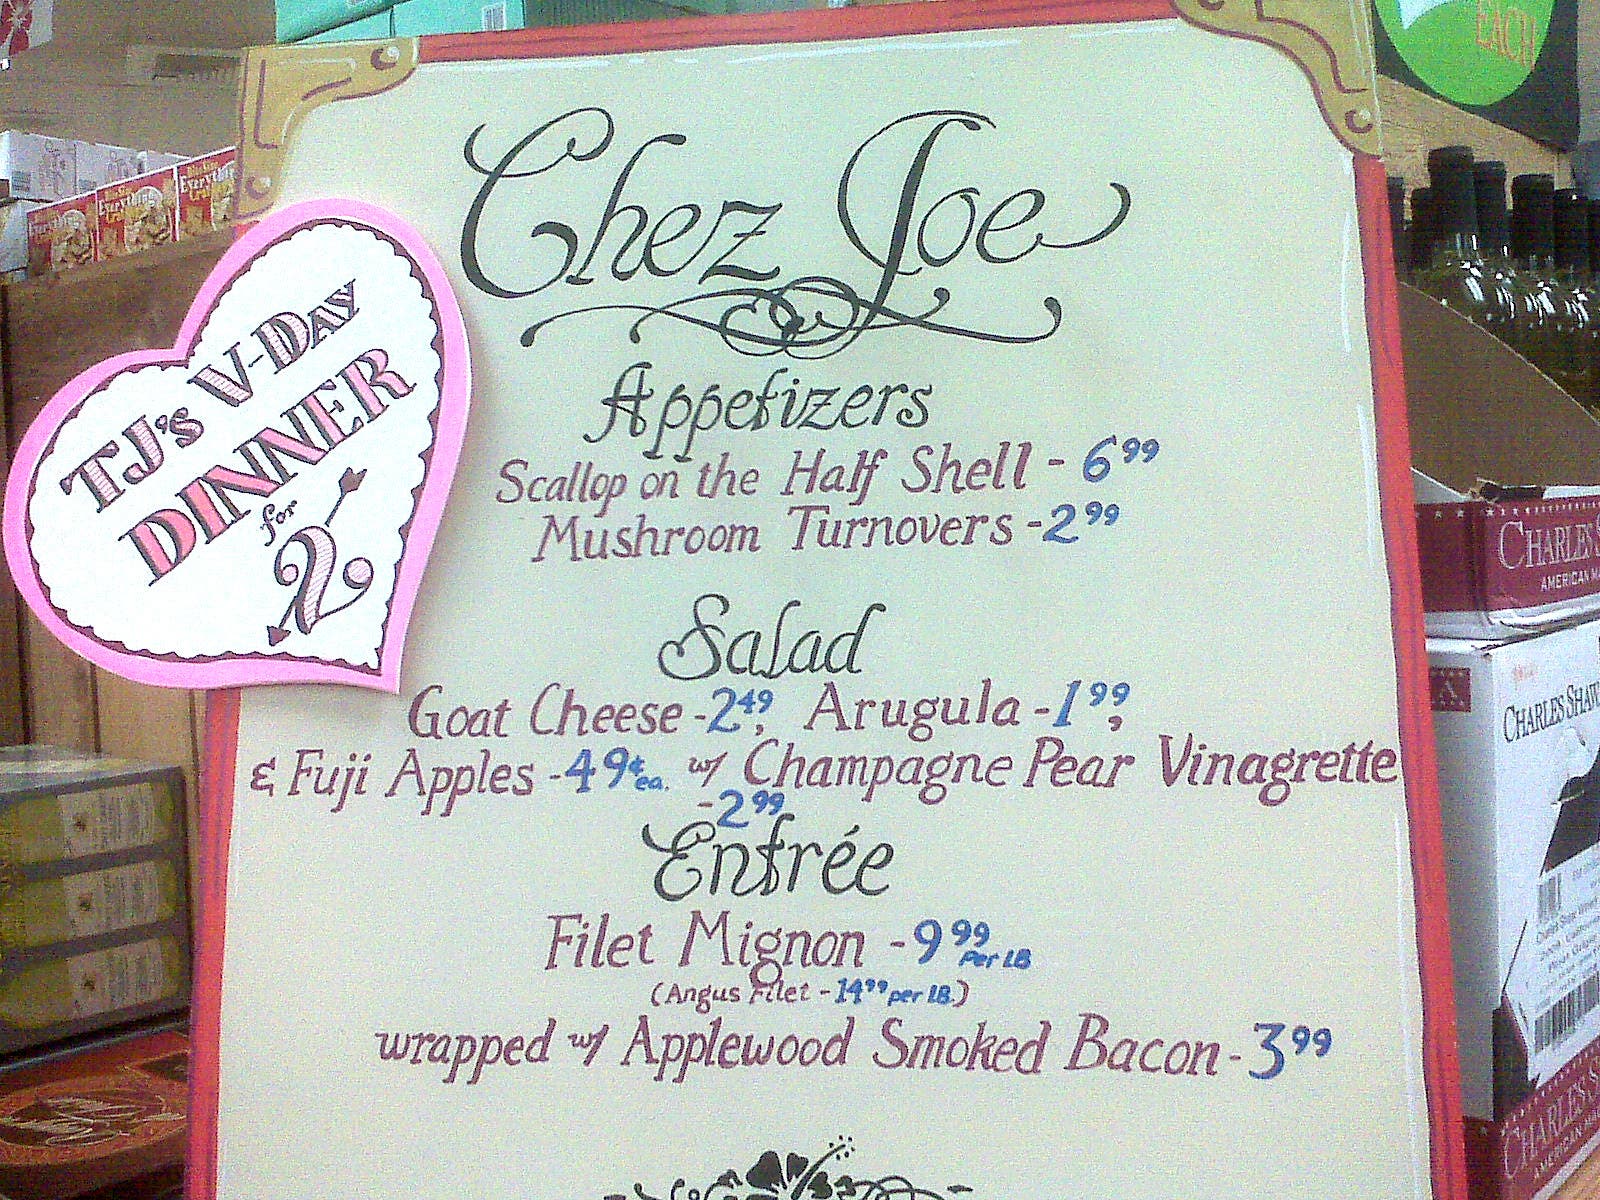 EACH
Bite Size
Everything
TJ's V-DAY
DINNER
for
2
Chez Joe
Appetizers
Scallop on the Half Shell - 6 99
Mushroom Turnovers - 2 99
Salad
Goat Cheese - 2 49, Arugula - 1 99,
& Fuji Apples - 49¢ ea. w/ Champagne Pear Vinagrette
- 2 99
Entrée
Filet Mignon - 9 99 Per LB
(Angus Filet - 14 99 per LB.)
wrapped w/ Applewood Smoked Bacon - 3 99
CHARLES
AMERICAN
CHARLES SHAW
CHARLES
AMERICAN